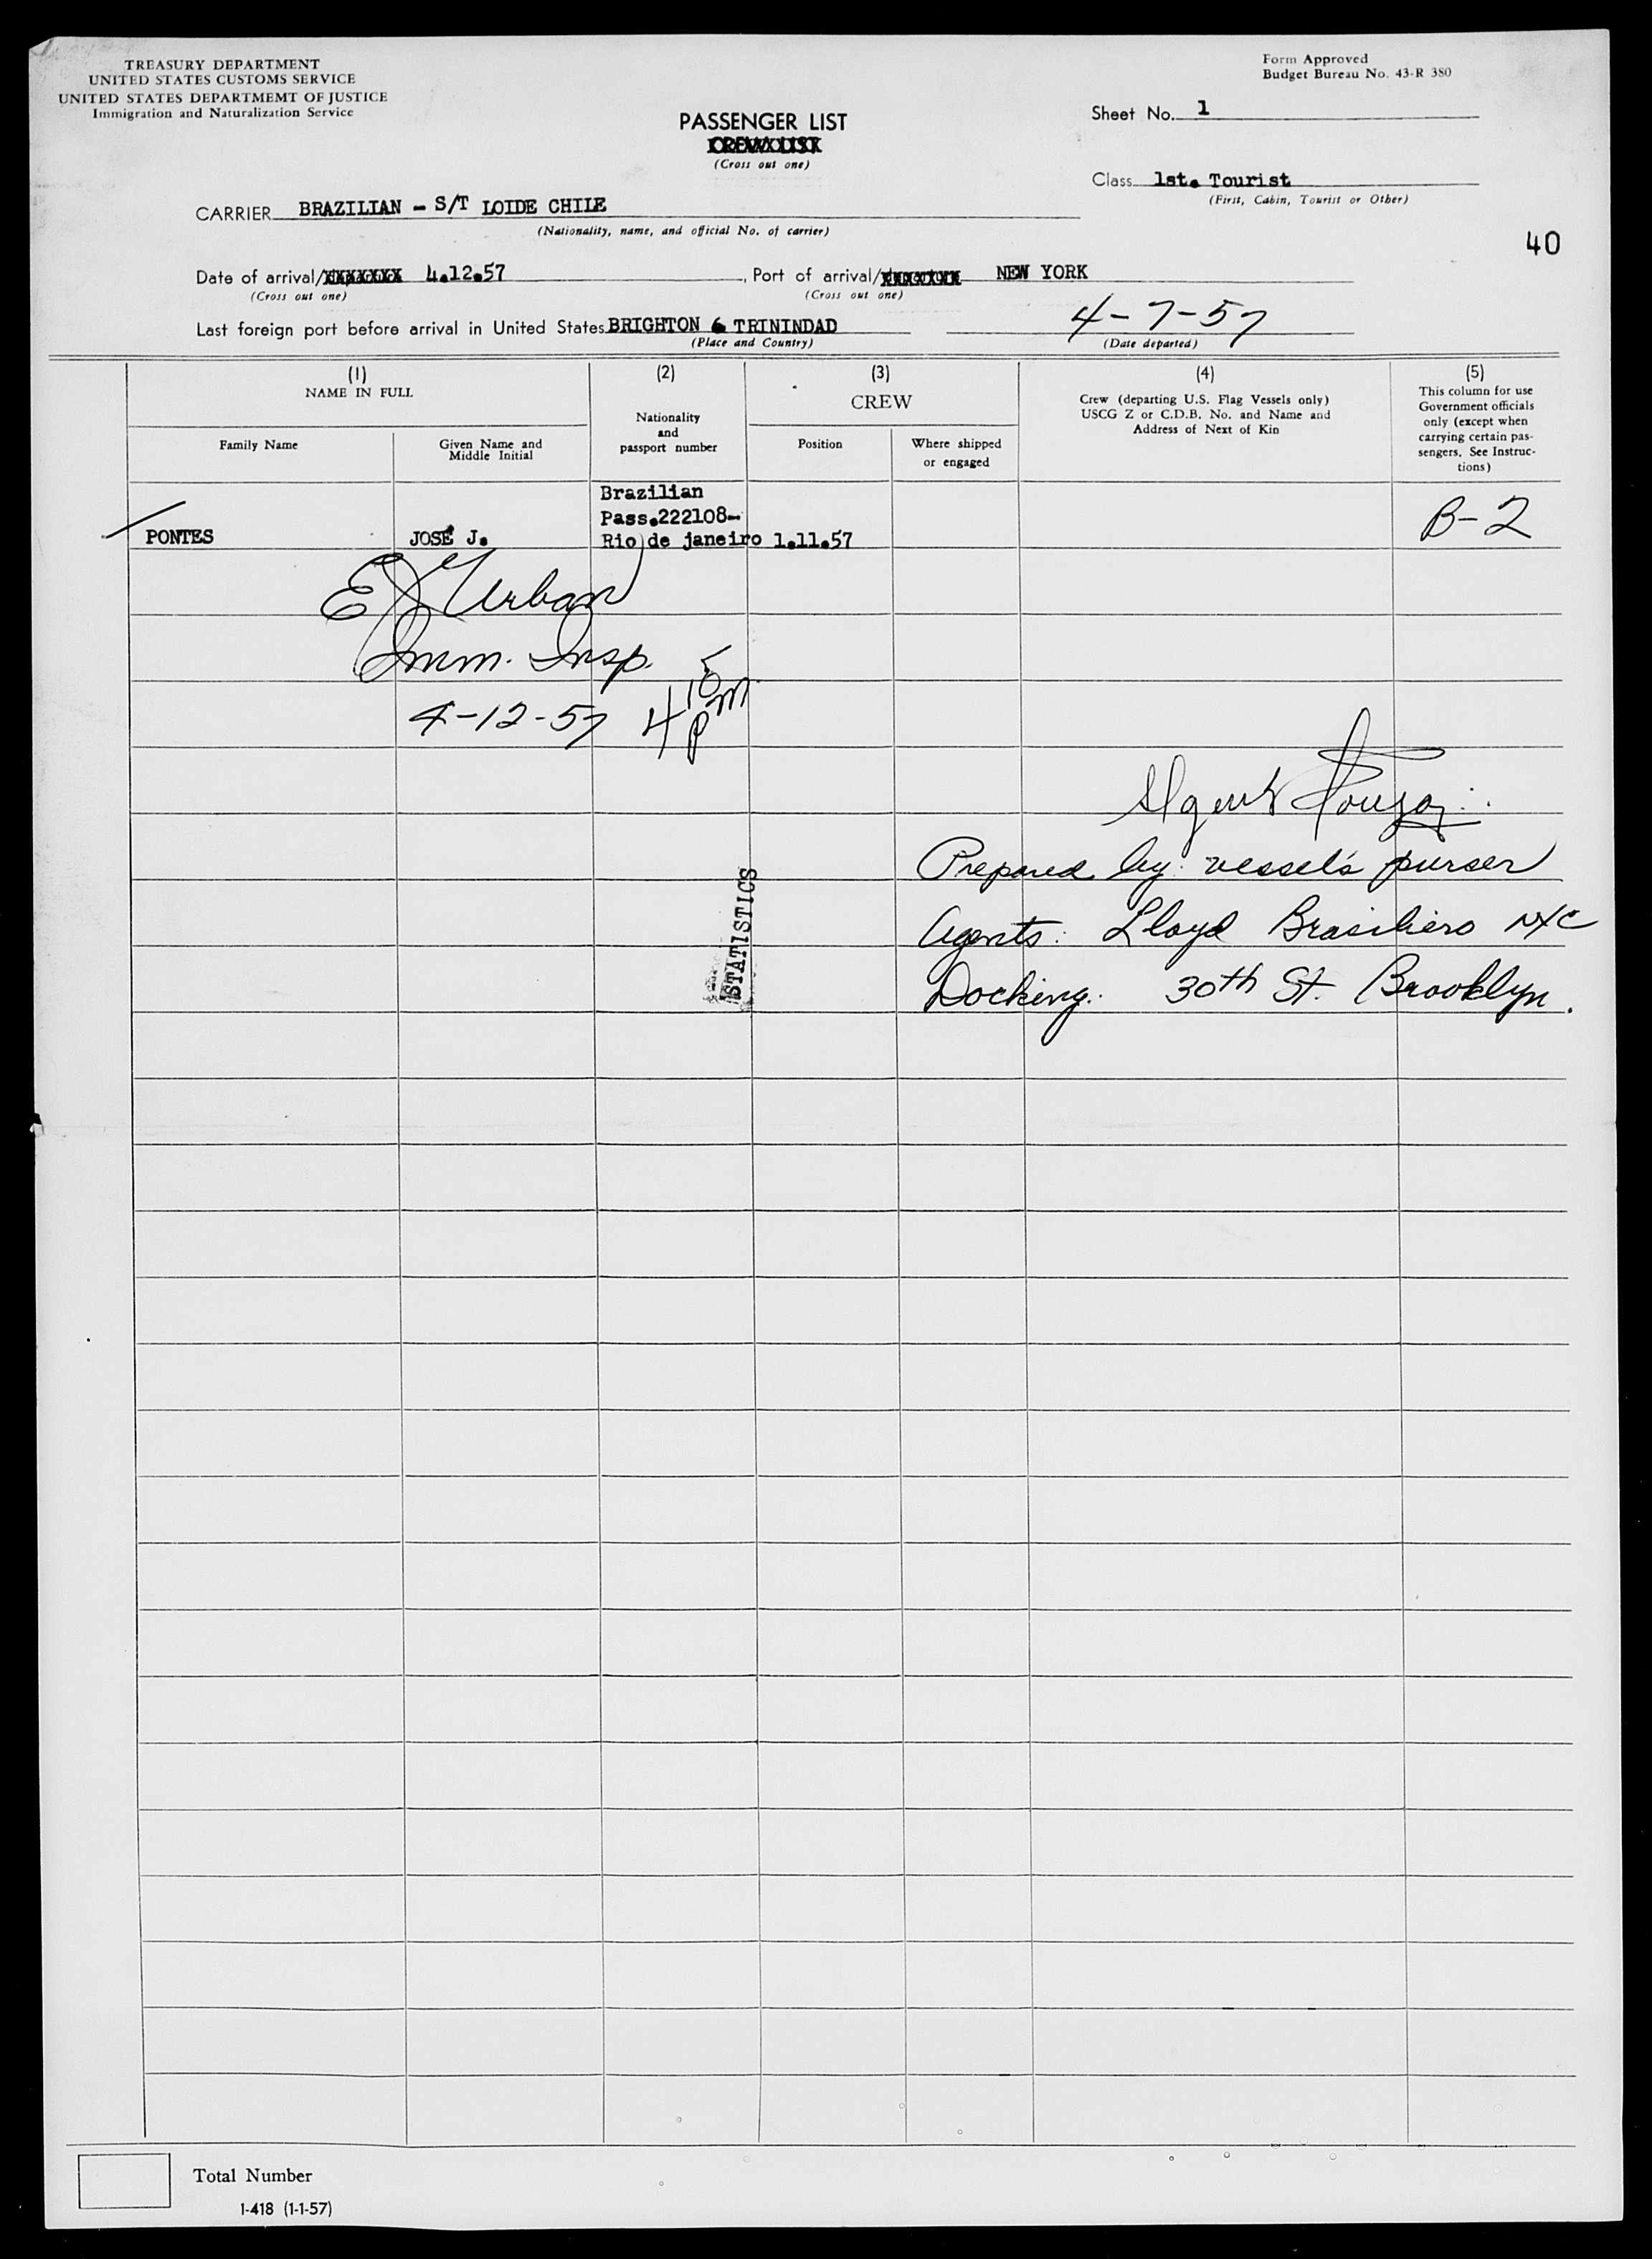 TREASURY DEPARTMENT
UNITED STATES CUSTOMS SERVICE
UNITED STATES DEPARTMEMT OF JUSTICE
Immigration and Naturalization Service
Form Approved
Budget Bureau No. 43-R 380
PASSENGER LIST
CREW LIST
(Cross out one)
Sheet No. 1
Class 1st. Tourist
(First, Cabin, Tourist or Other)
CARRIER BRAZILIAN - S/T LOIDE CHILE
(Nationality, name, and official No. of carrier)
40
Date of arrival/XXXXXXX 4.12.57, Port of arrival/ NEW YORK
(Cross out one) (Cross out one)
Last foreign port before arrival in United States BRIGHTON & TRININDAD 4-7-57
(Place and Country) (Date departed)
(1)
NAME IN FULL
Family Name
Given Name and
Middle Initial
(2)
Nationality
and
passport number
(3)
CREW
Position
Where shipped
or engaged
(4)
Crew (departing U.S. Flag Vessels only)
USCG Z or C.D.B. No. and Name and
Address of Next of Kin
(5)
This column for use
Government officials
only (except when
carrying certain pas-
sengers. See Instruc-
tions)
Brazilian
Pass.222108-
PONTES JOSÉ J. Rio de janeiro 1.11.57 B-2
E J Urban
Imm. Insp.
4-12-57 4 10 pm
Prepared by: vessel's purser
Agents: Lloyd Brasiliero NYC
Docking: 30th St. Brooklyn.
STATISTICS
Total Number
I-418 (1-1-57)